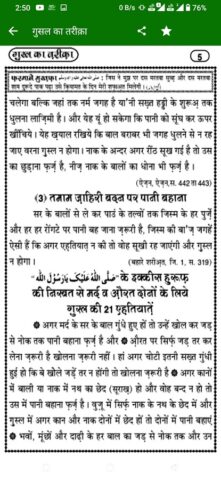 2:50
0 B/s
62%
गुसल का तरीक़ा
ग़ुस्ल का त़रीक़ा
5
फ़रमाने मुस्त़फ़ा
जिस ने मुझ पर दस मरतबा सुब्ह और दस मरतबा
शाम दुरूदे पाक पढ़ा उसे क़ियामत के दिन मेरी शफ़ाअ़त मिलेगी ।
चलेगा बल्कि जहां तक नर्म जगह है या'नी सख़्त हड्डी के शुरूअ़ तक
धुलना लाज़िमी है। और येह यूं हो सकेगा कि पानी को सूंघ कर ऊपर
खींचिये। येह ख़याल रखिये कि बाल बराबर भी जगह धुलने से न रह
जाए वरना ग़ुस्ल न होगा। नाक के अन्दर अगर रींठ सूख गई है तो उस
का छुड़ाना फ़र्ज़ है, नीज़ नाक के बालों का धोना भी फ़र्ज़ है।
(ऐज़न, ऐज़न, स. 442 ता 443)
(3) तमाम ज़ाहिरी बदन पर पानी बहाना
सर के बालों से ले कर पाउं के तल्वों तक जिस्म के हर पुर्ज़े
और हर हर रोंगटे पर पानी बह जाना ज़रूरी है, जिस्म की बा'ज़ जगहें
ऐसी हैं कि अगर एह़तियात़ न की तो वोह सूखी रह जाएंगी और ग़ुस्ल
न होगा।
(बहारे शरीअ़त, जि. 1, स. 319)
"صَلَّى اللهُ عَلَيْكَ يَا رَسُوْلَ الله" के इक्कीस हुरूफ़
की निस्बत से मर्द व औ़रत दोनों के लिये
ग़ुस्ल की 21 एह़तियात़ें
❁ अगर मर्द के सर के बाल गुंधे हुए हों तो उन्हें खोल कर जड़
से नोक तक पानी बहाना फ़र्ज़ है और ❁ औ़रत पर सिर्फ़ जड़ तर कर
लेना ज़रूरी है खोलना ज़रूरी नहीं। हां अगर चोटी इतनी सख़्त गुंधी
हुई हो कि बे खोले जड़ें तर न होंगी तो खोलना ज़रूरी है ❁ अगर कानों
में बाली या नाक में नथ का छेद (सूराख़) हो और वोह बन्द न हो तो
उस में पानी बहाना फ़र्ज़ है। वुज़ू में सिर्फ़ नाक के नथ के छेद में और
ग़ुस्ल में अगर कान और नाक दोनों में छेद हों तो दोनों में पानी बहाएं
❁ भवों, मूंछों और दाढ़ी के हर बाल का जड़ से नोक तक और उन